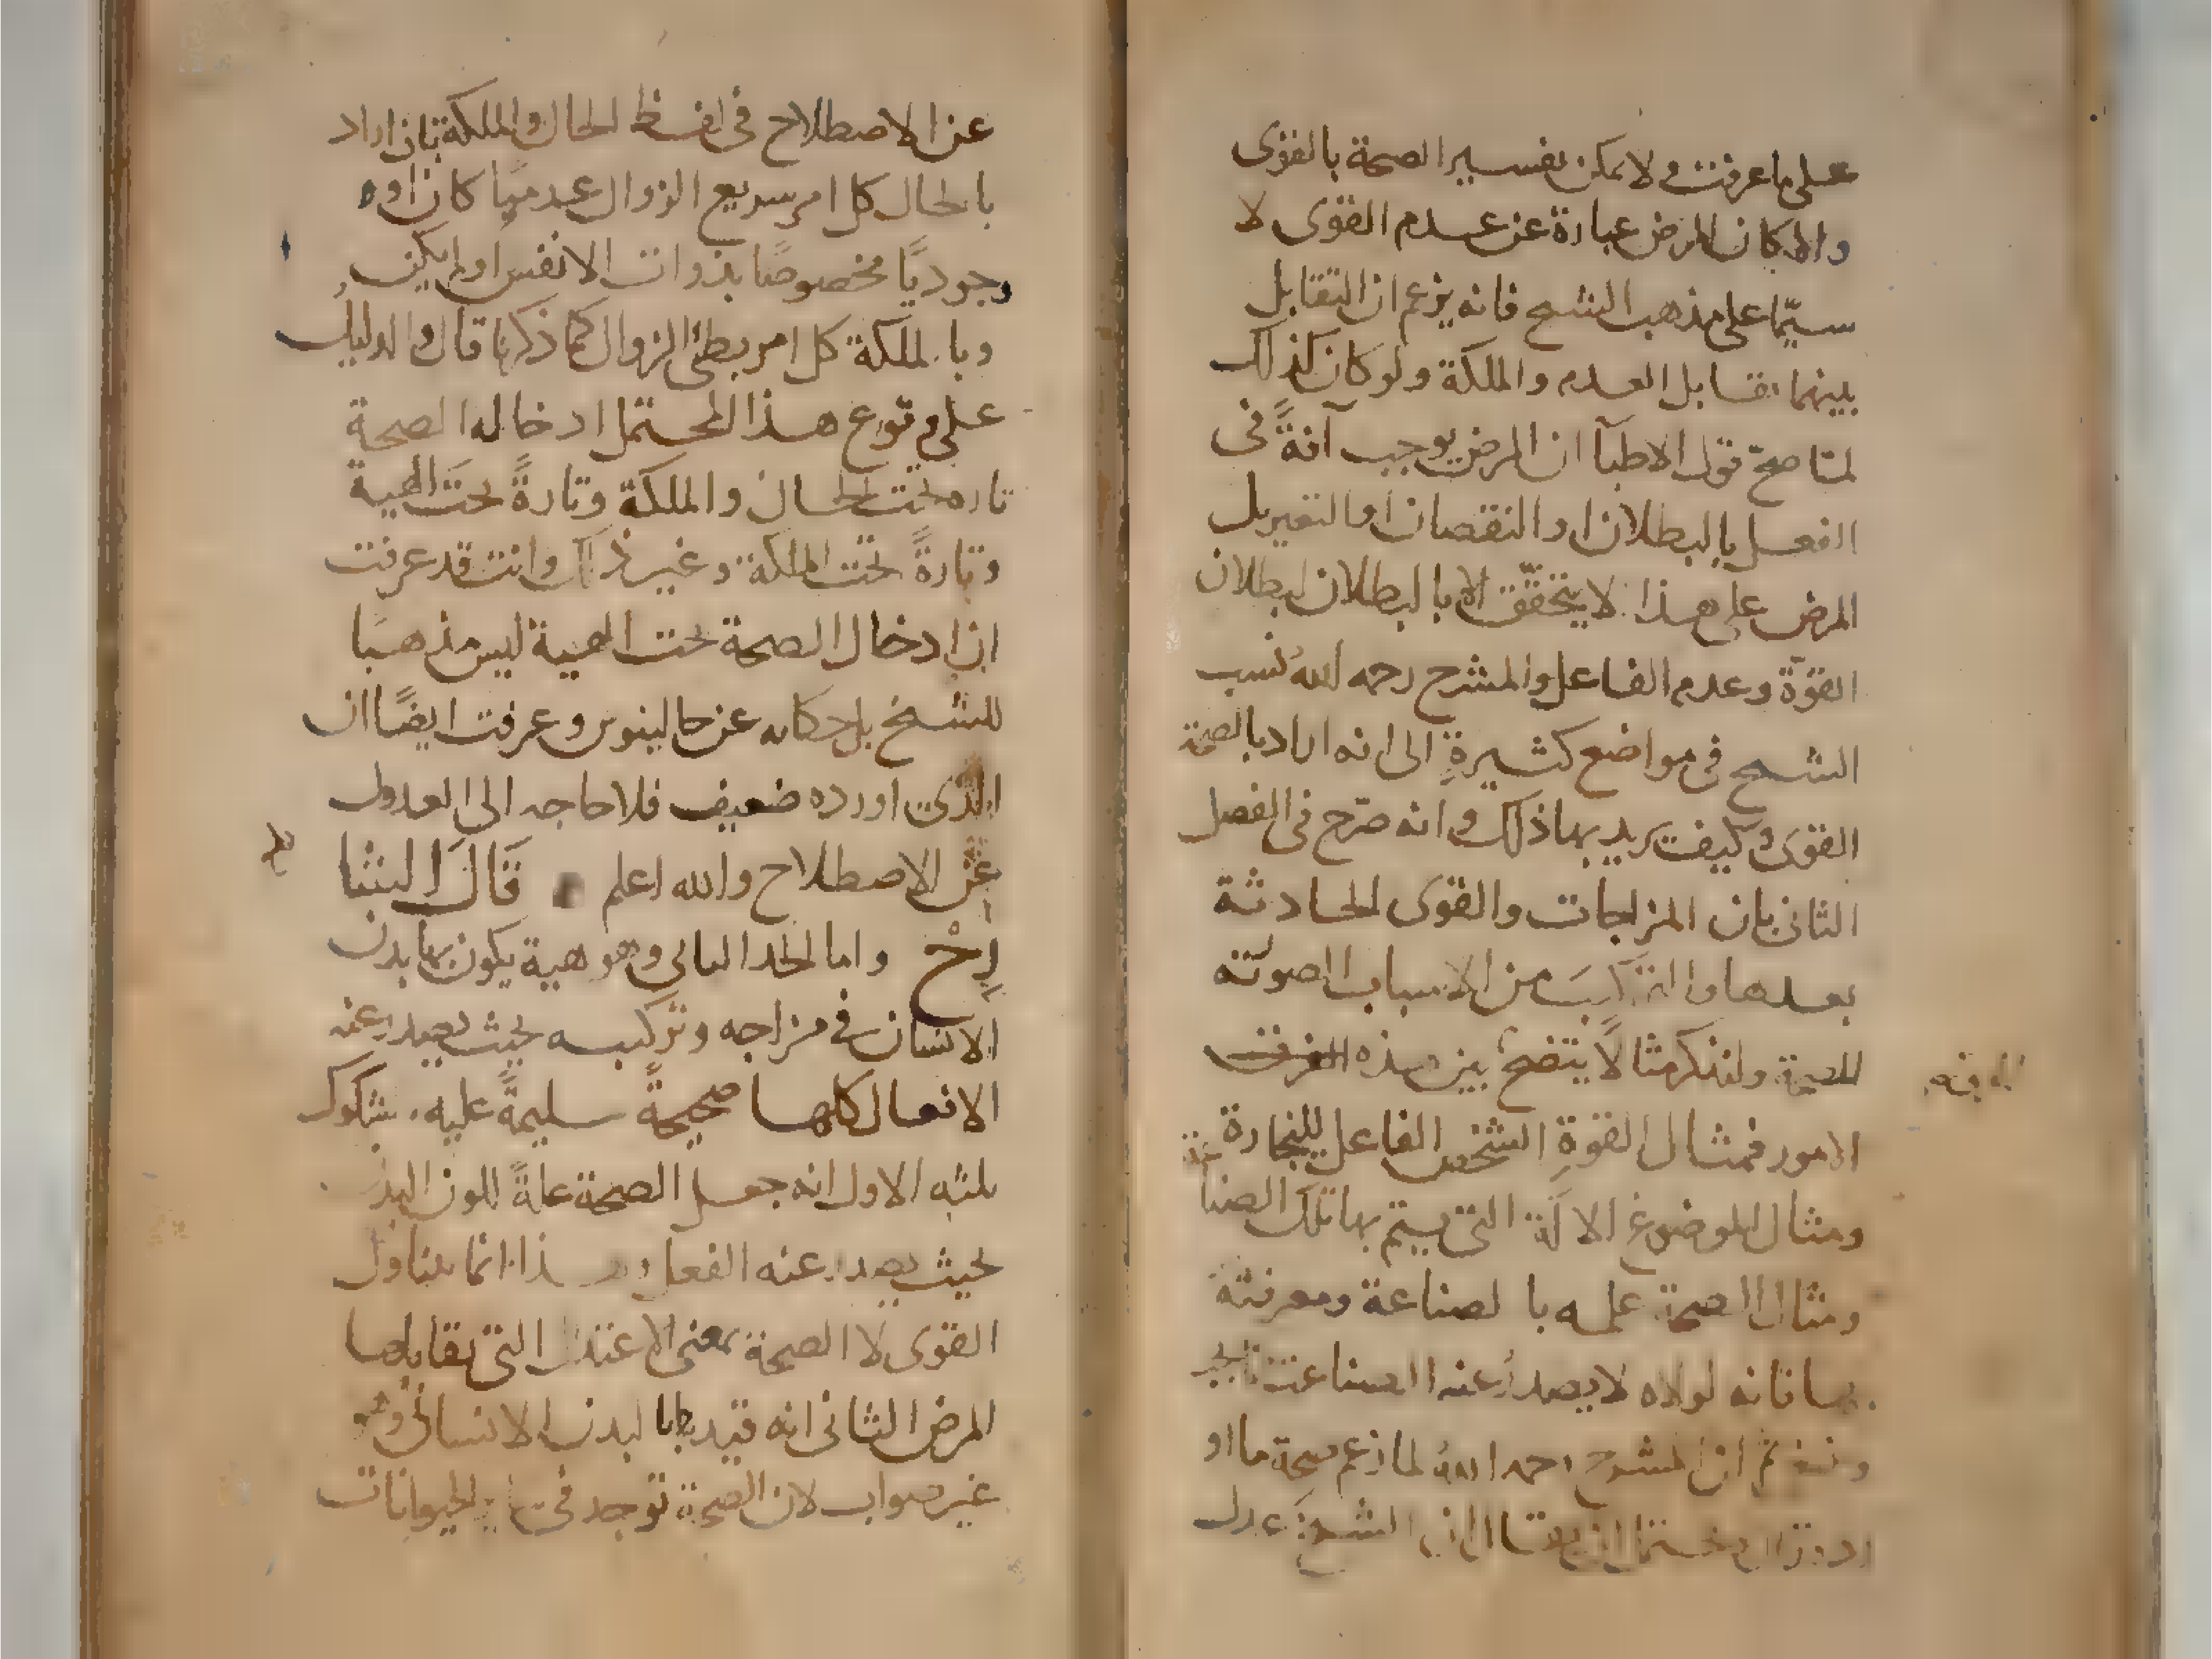 على ما عرفت ولا يمكن تفسير الصحة بالقوى
والا لكان المرض عبارة عن عدم القوى لا
سيّما على مذهب الشيخ فانه يزعم ان التقابل
بينهما تقابل العدم والملكة ولو كان كذلك
لما صحّ قول الاطبآ ان المرض يوجب آفةً فى
الفعل بالبطلان او النقصان او التغير بل
المرض على هذا لا يتحقّق الا بالبطلان لبطلان
القوّة وعدم الفاعل والمشرح رحمه اللهُ نسب
الشيخ فى مواضع كثيرةٍ الى انه اراد بالصحة
القوى وكيف يريد بها ذلك وانه صرّح فى الفصل
الثانى بان المزاجات والقوى الحادثة
بعدها والتركيب من الاسباب الصورية
للصحة ولنذكر مثالًا يتضح بين هذه الفرق
الامور فمثال القوةِ الشخص الفاعل للنجارة
ومثال الموضوع الالة التى يستم بها تلك الصنا
ومثال الصحة علمه بالصناعة ومعرفته
بها فانه لولاه لا يصدر عنه الصناعة
ثم ان المشرح رحمه اللهُ لما زعم صحة ما او
ان يقال ان الشيخ عدل
عن الاصطلاح فى لفظ الحال والملكة بان اراد
بالحال كل امر سريع الزوال عدميًا كان او
وجوديًا مخصوصًا بذوات الانفس او لم يكن
وبالملكة كل امر بطئ الزوال كما ذكرنا قال والدليل
على وقوع هذا المحتمل ادخاله الصحة
تاره تحت الحال والملكة وتارةً تحت الهية
وتارةً تحت الملكة وغير ذلك وانت قد عرفت
ان ادخال الصحة تحت الهية ليس مذهبًا
للشيخ بل حكاه عن جالينوس وعرفت ايضًا ان
الذى اورده ضعيف فلا حاجه الى العدول
عن الاصطلاح والله اعلم قَالَ الشا
رِحْ واما الحد الثانى وهو هية يكون بها بدن
الانسان فى مزاجه وتركيبه بحيث يصدر عنه
الافعال كلها صحيحةً سليمةً عليه شكوك
ثلثه الاول انه جعل الصحة علةً لكون البدن
بحيث يصدر عنه الفعل وهذا انما يتناول
القوى لا الصحة بمعنى الاعتدال التى تقابلها
المرض الثانى انه قيدها بالبدن الانسانى وهو
غير صواب لان الصحة توجد فى الحيوانات